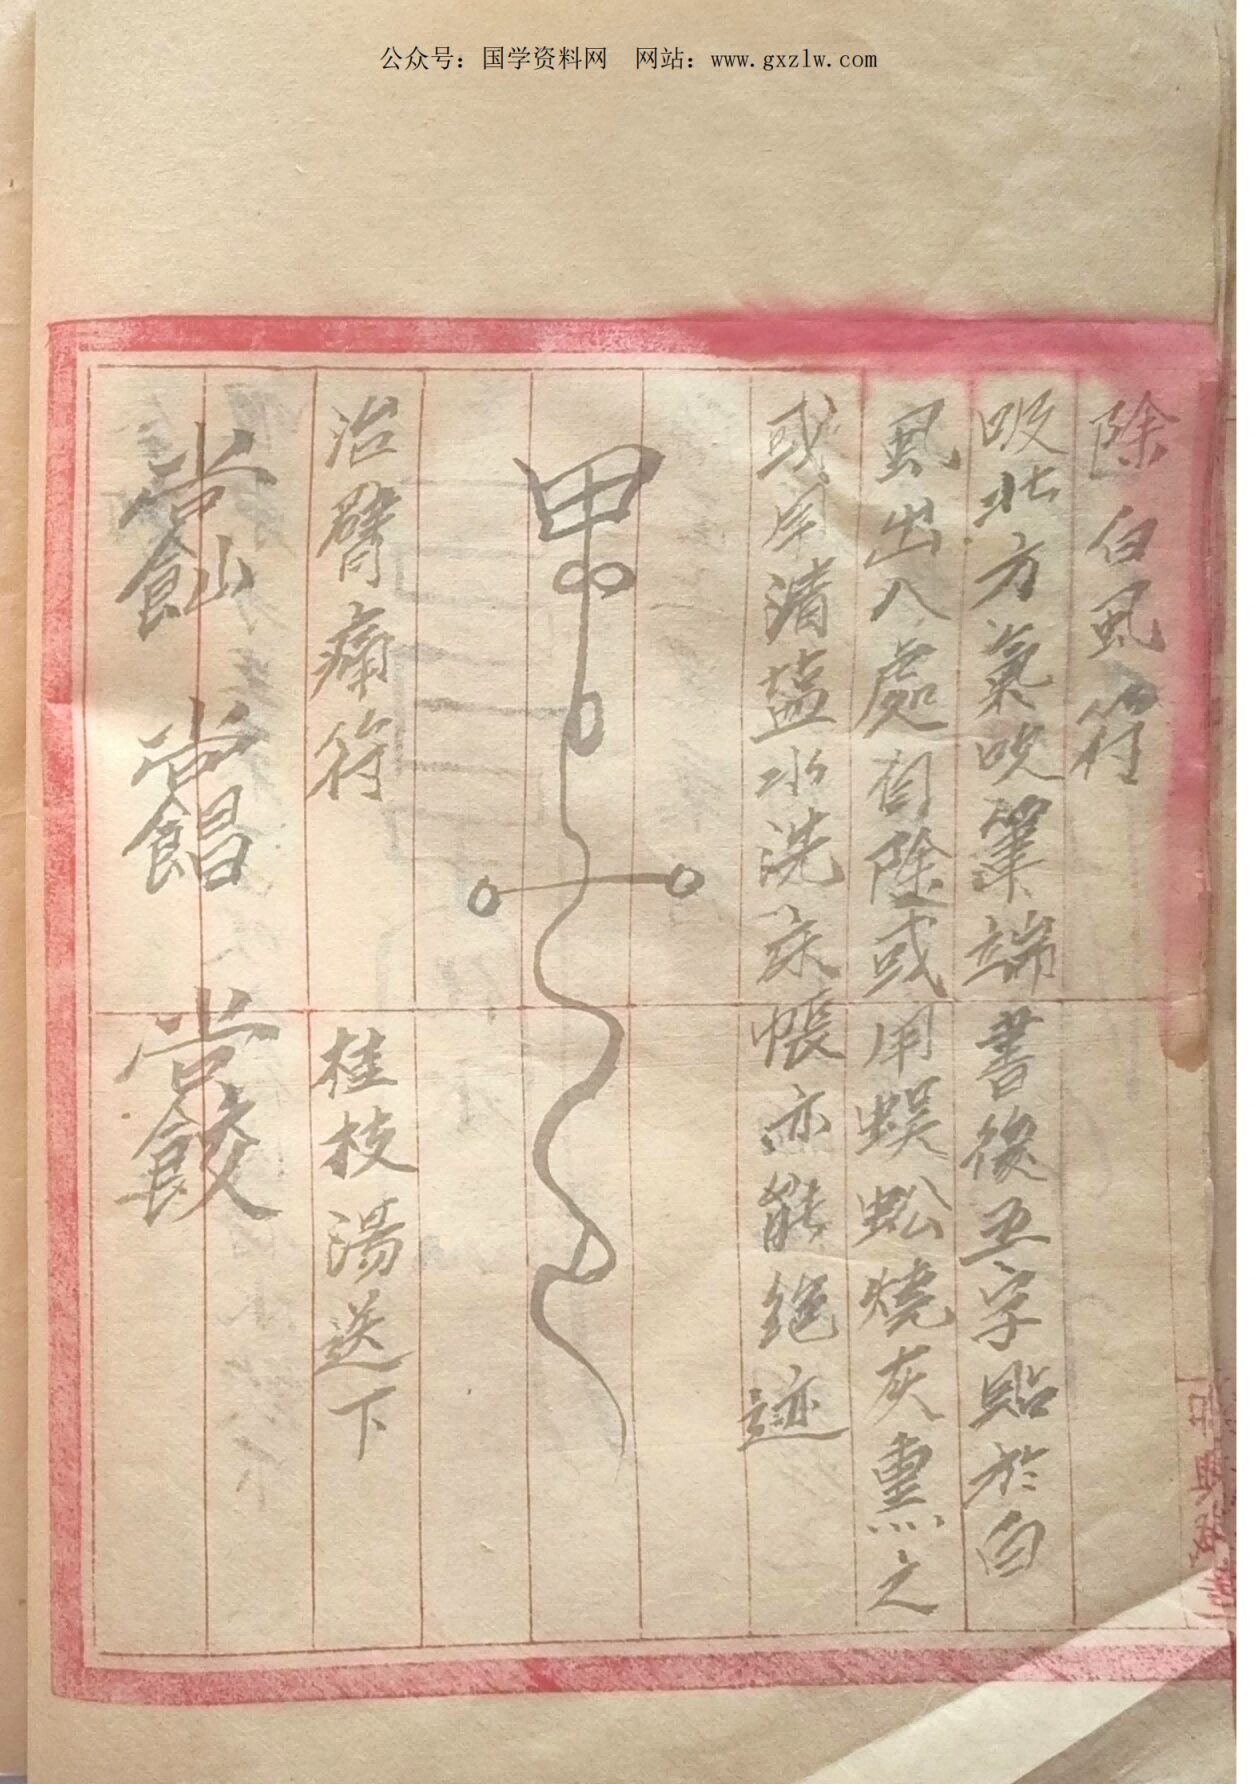 公众号：国学资料网　网站：www.gxzlw.com
除白虱符
吸北方氣吹筆端書後五字貼於白
虱出入處自除或用蜈蚣燒灰熏之
或用清塩水洗床帳亦能絕迹
甲
治臂痛符　桂枝湯送下